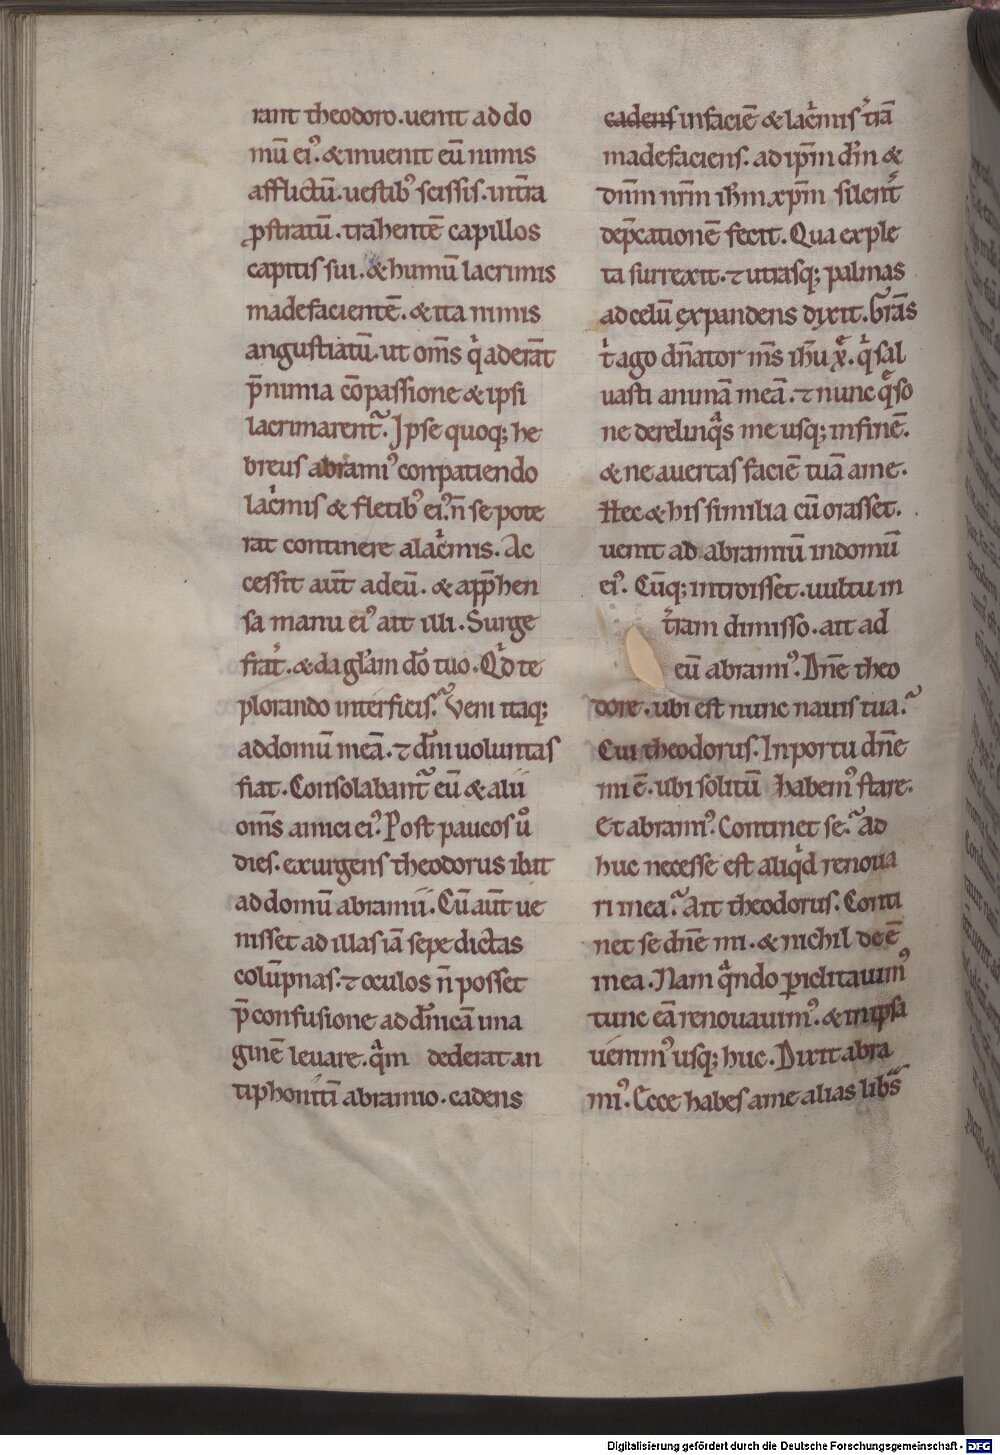 rant theodoro. uenit ad do
mū ei᾽. & inuenit eū nimis
afflictū. uestib᾽ scissis. in tr̄a
ꝓstratū. trahentē capillos
capitis sui. & humū lacrimis
madefacientē. & ita nimis
angustiatū. ut om̄s qͥ aderāt
p̄ nimia cōpassione & ipsi
lacrimarent᷑. Ipse quoq; he
breus abrami᾽ conpatiendo
lacͥmis & fletib᾽ ei᾽. n̄ se pote
rat continere a lacͥmis. Ac
cessit aūt ad eū. & app̄hen
sa manu ei᾽ ait illi. Surge
frat᷑. & da gl̄am dō tuo. Qͥd te
plorando interficis? Veni itaq;
ad domū meā. ⁊ dn̄i uoluntas
fiat. Consolabant᷑ eū & alii
om̄s amici ei᾽. Post paucos ū
dies. exurgens theodorus ibat
ad domū abramii. Cū aūt ue
nisset ad illas iā sepe dictas
colūpnas. ⁊ oculos n̄ posset
p̄ confusione ad dn̄icā ima
ginē leuare. qͣm dederat an
tiphonitī abramio. cadens
cadens in faciē & lacͥmis tr̄ā
madefaciens. ad ip̄m dn̄m &
dn̄m nr̄m ih̄m xp̄m silent᷑
dep̄cationē fecit. Qua exple
ta surrexit. ⁊ utrasq; palmas
ad celū expandens dixit. Gr̄as
tͥ ago dn̄ator m̄s ih̄u xͤ. qͥ sal
uasti animā meā. ⁊ nunc qͤso
ne derelinqͣs me usq; in finē.
& ne auertas faciē tuā a me.
Hec & his similia cū orasset.
uenit ad abramiū in domū
ei᾽. Cūq; introisset. uultu in
tr̄am dimisso. ait ad
eū abrami᾽. Dn̄e theo
dore. ubi est nunc nauis tua?
Cui theodorus. In portu dn̄e
mi ē. ubi solitū habem᾽ stare.
Et abrami᾽. Continet se? Ad
huc necesse est aliqͥd renoua
ri in ea? Ait theodorus. Conti
net se dn̄e mi. & nichil deē
in ea. Nam qͣndo ꝑiclitauim᾽
tunc eā renouauim᾽. & in ipsa
uenim᾽ usq; huc. Dixit abra
mi᾽. Ecce habes a me alias lib̄s
Digitalisierung gefördert durch die Deutsche Forschungsgemeinschaft - DFG